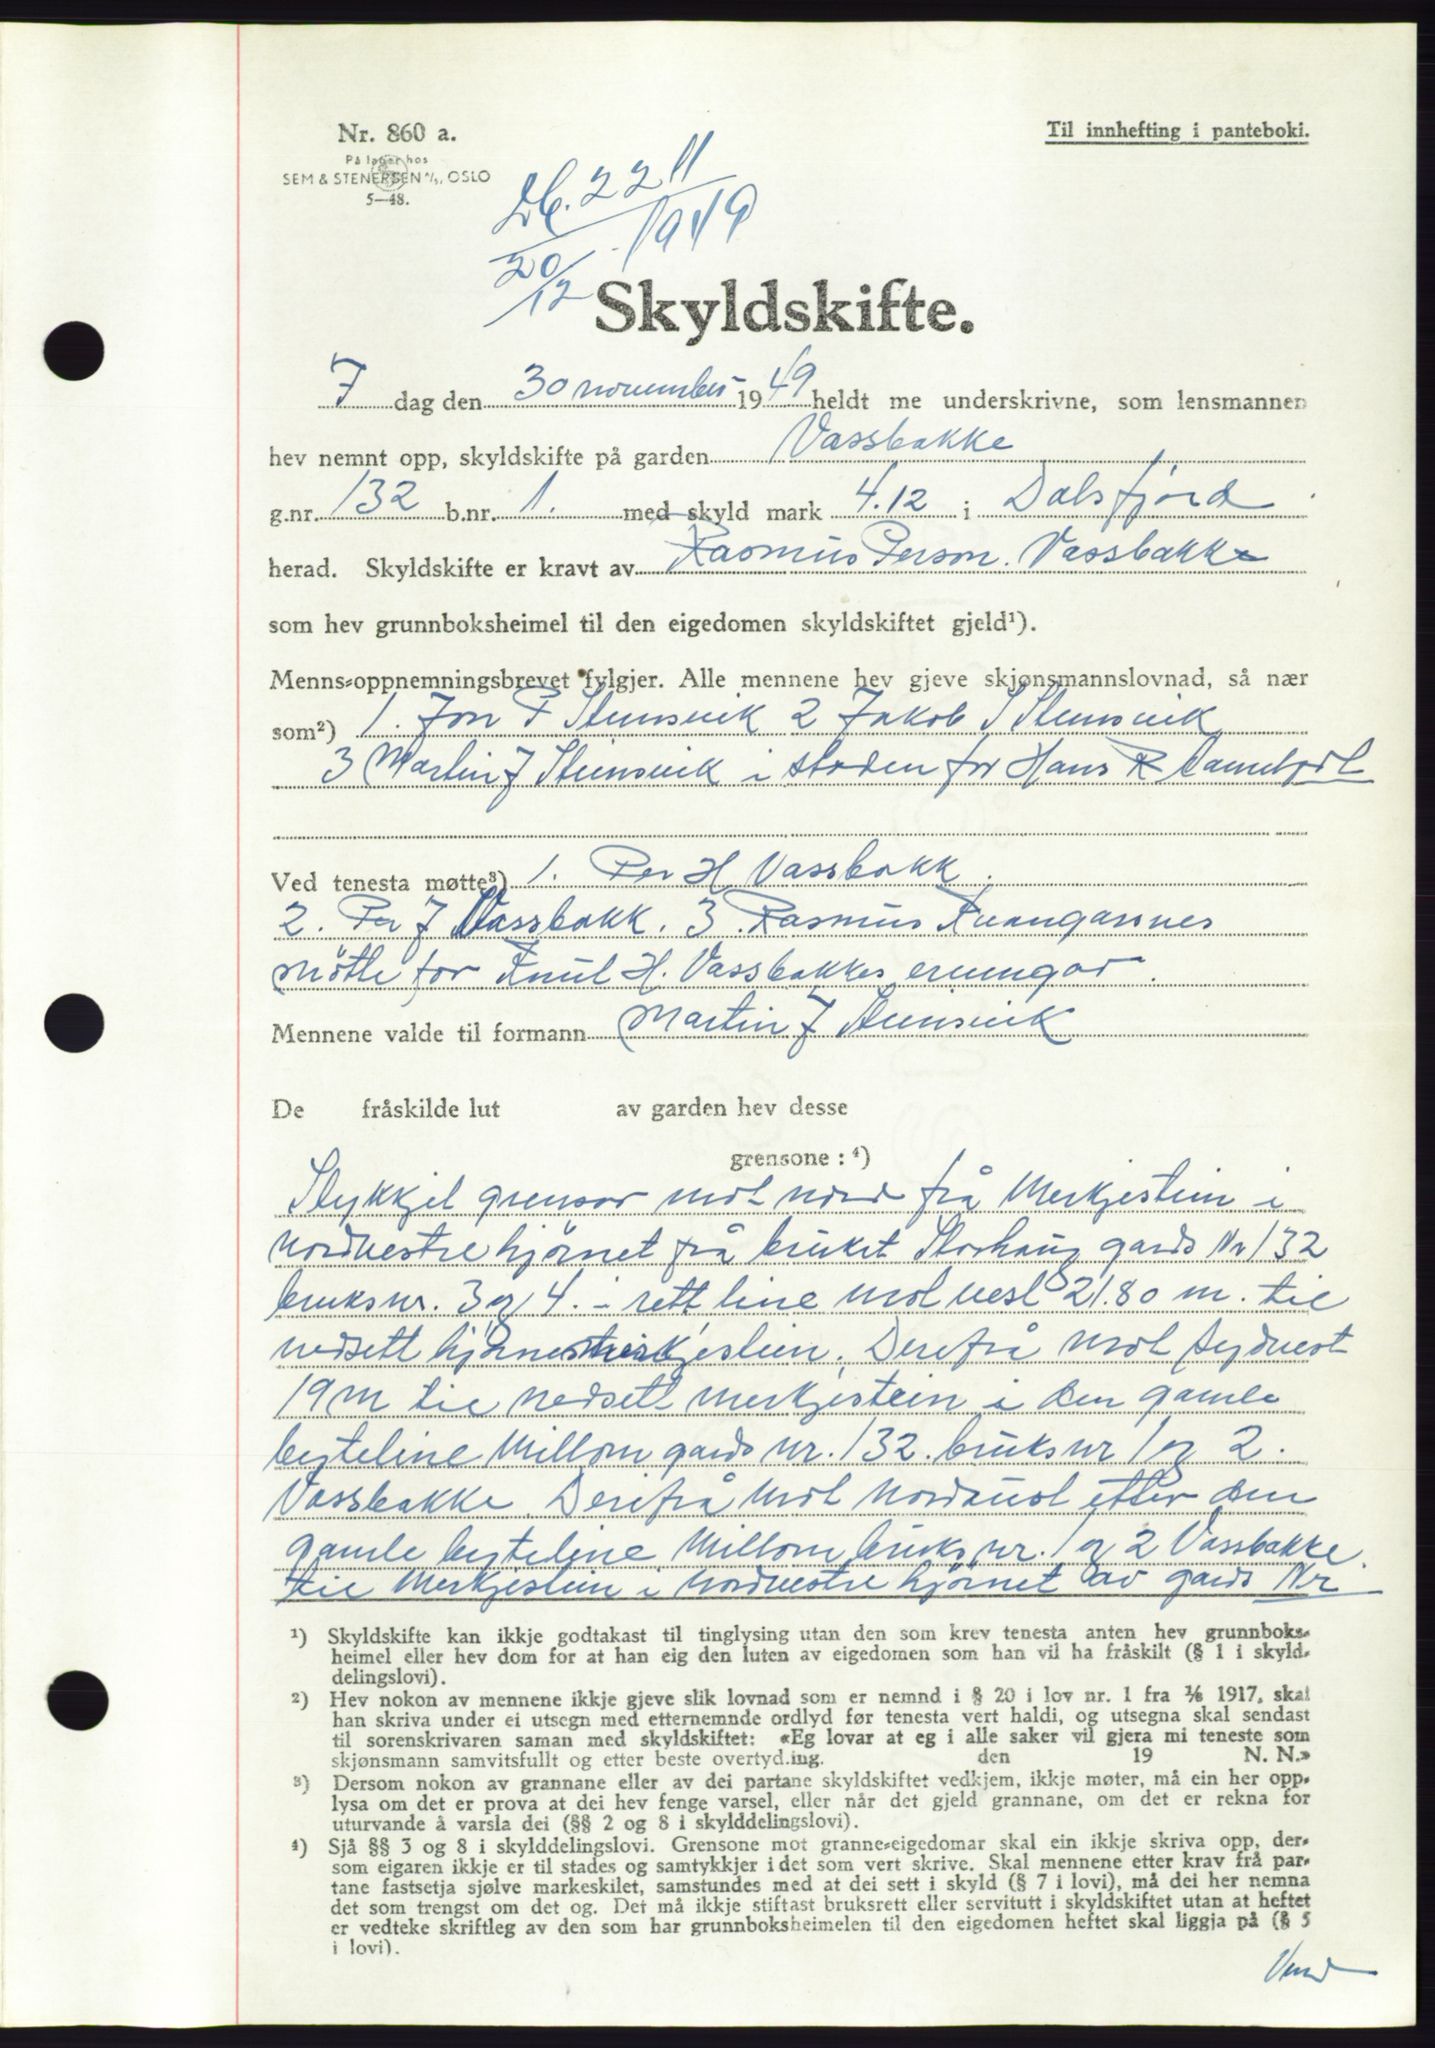 Nr. 860 a.
På lager hos
SEM & STENERSEN A/S, OSLO
5—48.
Til innhefting i panteboki.
Db. 2211/1949
20/12
Skyldskifte.
I dag den 30 november 1949 heldt me underskrivne, som lensmannen
hev nemnt opp, skyldskifte på garden Vassbakke
g.nr. 132 b.nr. 1. med skyld mark 4.12 i Dalsfjord
herad. Skyldskifte er kravt av Rasmus Person. Vassbakke
som hev grunnboksheimel til den eigedomen skyldskiftet gjeld¹).
Menns-oppnemningsbrevet fylgjer. Alle mennene hev gjeve skjønsmannslovnad, så nær
som²) 1. Jon P Steinsvik 2 Jakob J Steinsvik
3 Martin J Steinsvik i staden for Hans R
Ved tenesta møtte³) 1. Per H Vassbakk.
2. Per J Vassbakk. 3. Rasmus Kvangarsnes
møtte for Knut H. Vassbakkes ervingar.
Mennene valde til formann Martin J Steinsvik
De fråskilde lut av garden hev desse
grensone : ⁴)
Stykkjet grensar mot nord frå Merkjestein i
nordvestre hjørnet frå bruket Storhaug gards Nr 132
bruksnr. 3 og 4. – rett line mot vest 21.80 m. til
nedsett hjørnemerkjestein. Derifrå mot sydvest
19 m til nedsett merkjestein i den gamle
byteline Millom gards nr. 132. bruksnr 1 og 2.
Vassbakke. Derifrå mot nordaust etter den
gamle byteline Millom bruksnr. 1 og 2 Vassbakke.
til Merkjestein i nordvestre hjørnet av gards Nr
¹) Skyldskifte kan ikkje godtakast til tinglysing utan den som krev tenesta anten hev grunnboks-
heimel eller hev dom for at han eig den luten av eigedomen som han vil ha fråskilt (§ 1 i skyld-
delingslovi).
²) Hev nokon av mennene ikkje gjeve slik lovnad som er nemnd i § 20 i lov nr. 1 fra 1/6 1917, skal
han skriva under ei utsegn med etternemnde ordlyd før tenesta vert haldi, og utsegna skal sendast
til sorenskrivaren saman med skyldskiftet: «Eg lovar at eg i alle saker vil gjera mi teneste som
skjønsmann samvitsfullt og etter beste overtyd.ing. den 19 N. N.»
³) Dersom nokon av grannane eller av dei partane skyldskiftet vedkjem, ikkje møter, må ein her opp-
lysa om det er prova at dei hev fenge varsel, eller når det gjeld grannane, om det er rekna for
uturvande å varsla dei (§§ 2 og 8 i skylddelingslovi).
⁴) Sjå §§ 3 og 8 i skylddelingslovi. Grensone mot granne-eigedomar skal ein ikkje skriva opp, der-
som eigaren ikkje er til stades og samtykkjer i det som vert skrive. Skal mennene etter krav frå par-
tane fastsetja sjølve markeskilet, samstundes med at dei sett i skyld (§ 7 i lovi), må dei her nemna
det som trengst om det og. Det må ikkje stiftast bruksrett eller servitutt i skyldskiftet utan at heftet
er vedteke skriftleg av den som har grunnboksheimelen til den eigedomen heftet skal liggja på (§ 5
i lovi).
Vend